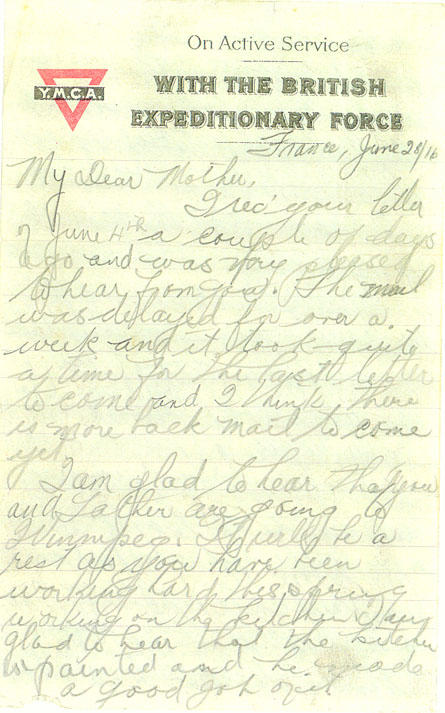 On Active Service
Y.M.C.A.
WITH THE BRITISH
EXPEDITIONARY FORCE
France, June 28/16
My Dear Mother,
I rec' your letter
of June 4th a couple of days
ago and was very pleased
to hear from you. The mail
was delayed for over a
week and it took quite
a time for the last letter
to come and I think there
is more back mail to come
yet.
I am glad to hear that you
and Father are going to
Winnipeg. It will be a
rest as you have been
working hard this spring
working on the kitchen I am
glad to hear that the kitchen
is painted and he made
a good job of it